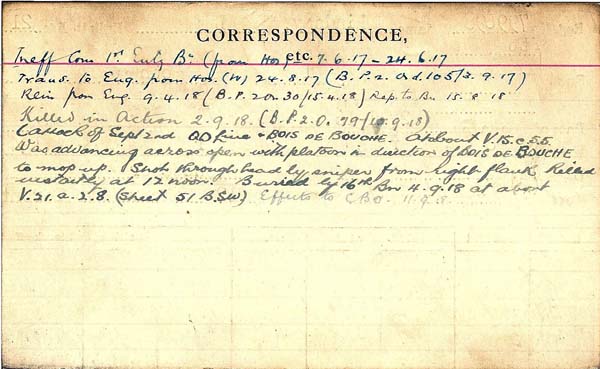 CORRESPONDENCE,
etc.
Ineff Com 1st Entg Bn (from Hos) 7.6.17 - 24.6.17
Trans. to Eng. from Hos. (W) 24.8.17 (B.P.2. O.d.105/3.9.17)
Rein from Eng. 9.4.18 (B.P.2 O.30/15.4.18) Rep. to Bn 15.8.18
Killed in Action 2.9.18. (B.P.2.O. 79/10.9.18)
(attack of Sept 2nd DD Line & BOIS DE BOUCHE. At about V.15.c.5.5.
Was advancing across open with platoon in direction of BOIS DE BOUCHE
to mop up. Shot through head by sniper from right flank. Killed
instantly at 12 noon. Buried by 16th Bn 4.9.18 at about
V.21.a.2.8. (Sheet 51.B.SW) Effects to C.B.O. 11.9.18